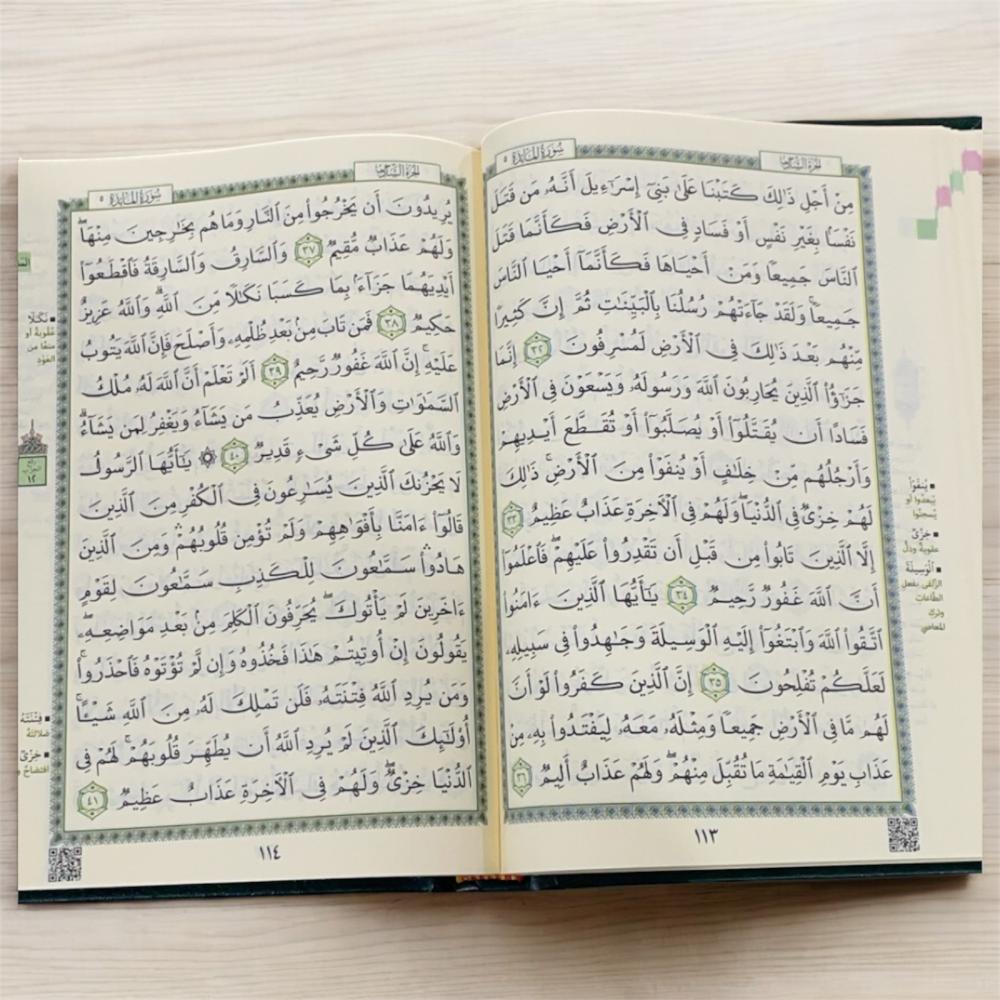 الجزء السادس
سورة المائدة ٥
مِنْ أَجْلِ ذَٰلِكَ كَتَبْنَا عَلَىٰ بَنِىٓ إِسْرَٰٓءِيلَ أَنَّهُۥ مَن قَتَلَ
نَفْسًۢا بِغَيْرِ نَفْسٍ أَوْ فَسَادٍ فِى ٱلْأَرْضِ فَكَأَنَّمَا قَتَلَ
ٱلنَّاسَ جَمِيعًا وَمَنْ أَحْيَاهَا فَكَأَنَّمَآ أَحْيَا ٱلنَّاسَ
جَمِيعًا ۚ وَلَقَدْ جَآءَتْهُمْ رُسُلُنَا بِٱلْبَيِّنَٰتِ ثُمَّ إِنَّ كَثِيرًا
مِّنْهُم بَعْدَ ذَٰلِكَ فِى ٱلْأَرْضِ لَمُسْرِفُونَ ٣٢ إِنَّمَا
جَزَٰٓؤُا۟ ٱلَّذِينَ يُحَارِبُونَ ٱللَّهَ وَرَسُولَهُۥ وَيَسْعَوْنَ فِى ٱلْأَرْضِ
فَسَادًا أَن يُقَتَّلُوٓا۟ أَوْ يُصَلَّبُوٓا۟ أَوْ تُقَطَّعَ أَيْدِيهِمْ
وَأَرْجُلُهُم مِّنْ خِلَٰفٍ أَوْ يُنفَوْا۟ مِنَ ٱلْأَرْضِ ۚ ذَٰلِكَ
لَهُمْ خِزْىٌ فِى ٱلدُّنْيَا ۖ وَلَهُمْ فِى ٱلْـَٔاخِرَةِ عَذَابٌ عَظِيمٌ ٣٣
إِلَّا ٱلَّذِينَ تَابُوا۟ مِن قَبْلِ أَن تَقْدِرُوا۟ عَلَيْهِمْ ۖ فَٱعْلَمُوٓا۟
أَنَّ ٱللَّهَ غَفُورٌ رَّحِيمٌ ٣٤ يَٰٓأَيُّهَا ٱلَّذِينَ ءَامَنُوا۟
ٱتَّقُوا۟ ٱللَّهَ وَٱبْتَغُوٓا۟ إِلَيْهِ ٱلْوَسِيلَةَ وَجَٰهِدُوا۟ فِى سَبِيلِهِۦ
لَعَلَّكُمْ تُفْلِحُونَ ٣٥ إِنَّ ٱلَّذِينَ كَفَرُوا۟ لَوْ أَنَّ
لَهُم مَّا فِى ٱلْأَرْضِ جَمِيعًا وَمِثْلَهُۥ مَعَهُۥ لِيَفْتَدُوا۟ بِهِۦ مِنْ
عَذَابِ يَوْمِ ٱلْقِيَٰمَةِ مَا تُقُبِّلَ مِنْهُمْ ۖ وَلَهُمْ عَذَابٌ أَلِيمٌ ٣٦
▪ يُنفَوْا۟
يُبعَدوا أو
يُسجنوا
▪ خِزْىٌ
عقوبة وذلٌّ
▪ ٱلْوَسِيلَةَ
الزُّلفى بفعل
الطَّاعات
وترك
المعاصي
١١٣
الجزء السادس
سورة المائدة ٥
يُرِيدُونَ أَن يَخْرُجُوا۟ مِنَ ٱلنَّارِ وَمَا هُم بِخَٰرِجِينَ مِنْهَا ۖ
وَلَهُمْ عَذَابٌ مُّقِيمٌ ٣٧ وَٱلسَّارِقُ وَٱلسَّارِقَةُ فَٱقْطَعُوٓا۟
أَيْدِيَهُمَا جَزَآءًۢ بِمَا كَسَبَا نَكَٰلًا مِّنَ ٱللَّهِ ۗ وَٱللَّهُ عَزِيزٌ
حَكِيمٌ ٣٨ فَمَن تَابَ مِنۢ بَعْدِ ظُلْمِهِۦ وَأَصْلَحَ فَإِنَّ ٱللَّهَ يَتُوبُ
عَلَيْهِ ۗ إِنَّ ٱللَّهَ غَفُورٌ رَّحِيمٌ ٣٩ أَلَمْ تَعْلَمْ أَنَّ ٱللَّهَ لَهُۥ مُلْكُ
ٱلسَّمَٰوَٰتِ وَٱلْأَرْضِ يُعَذِّبُ مَن يَشَآءُ وَيَغْفِرُ لِمَن يَشَآءُ ۗ
وَٱللَّهُ عَلَىٰ كُلِّ شَىْءٍ قَدِيرٌ ٤٠ ۞ يَٰٓأَيُّهَا ٱلرَّسُولُ
لَا يَحْزُنكَ ٱلَّذِينَ يُسَٰرِعُونَ فِى ٱلْكُفْرِ مِنَ ٱلَّذِينَ
قَالُوٓا۟ ءَامَنَّا بِأَفْوَٰهِهِمْ وَلَمْ تُؤْمِن قُلُوبُهُمْ ۛ وَمِنَ ٱلَّذِينَ
هَادُوا۟ ۛ سَمَّٰعُونَ لِلْكَذِبِ سَمَّٰعُونَ لِقَوْمٍ
ءَاخَرِينَ لَمْ يَأْتُوكَ ۖ يُحَرِّفُونَ ٱلْكَلِمَ مِنۢ بَعْدِ مَوَاضِعِهِۦ ۖ
يَقُولُونَ إِنْ أُوتِيتُمْ هَٰذَا فَخُذُوهُ وَإِن لَّمْ تُؤْتَوْهُ فَٱحْذَرُوا۟ ۚ
وَمَن يُرِدِ ٱللَّهُ فِتْنَتَهُۥ فَلَن تَمْلِكَ لَهُۥ مِنَ ٱللَّهِ شَيْـًٔا ۚ
أُو۟لَٰٓئِكَ ٱلَّذِينَ لَمْ يُرِدِ ٱللَّهُ أَن يُطَهِّرَ قُلُوبَهُمْ ۚ لَهُمْ فِى
ٱلدُّنْيَا خِزْىٌ ۖ وَلَهُمْ فِى ٱلْـَٔاخِرَةِ عَذَابٌ عَظِيمٌ ٤١
▪ نَكَٰلًا
عُقوبةً أو
منعًا من
العَوْدِ
١٢
▪ فِتْنَتَهُۥ
ضلالتَهُ
▪ خِزْىٌ
افتضاحٌ و
١١٤